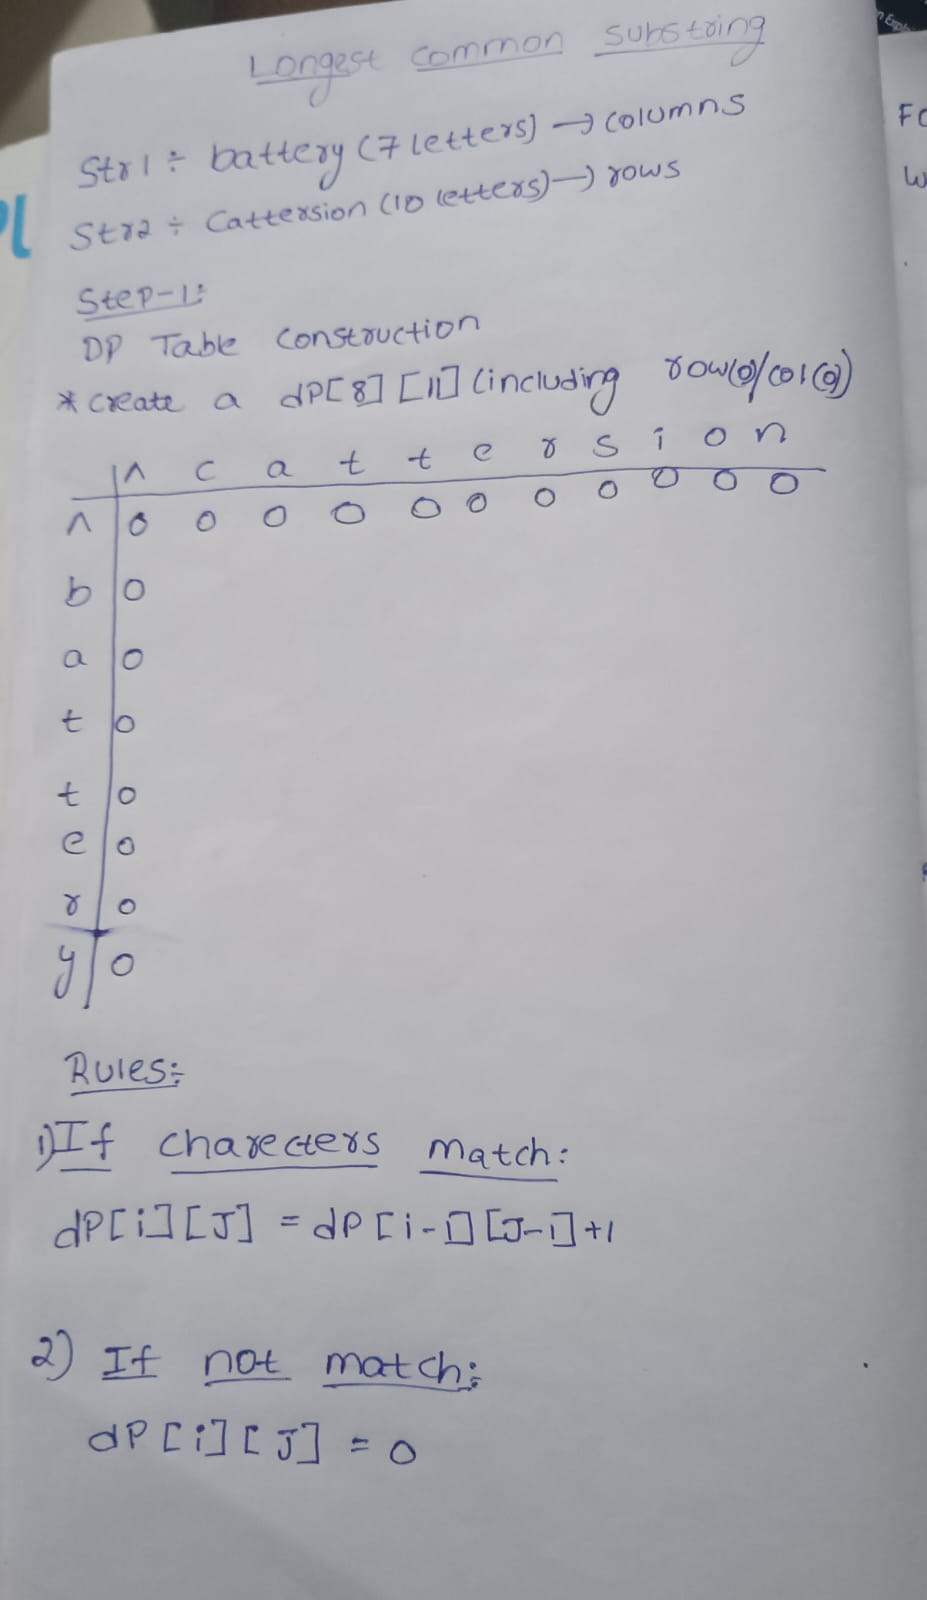 Longest common substring
Str1 ÷ battery (7 letters) → columns
Str2 ÷ Cattersion (10 letters) → rows
Step-1:
DP Table Construction
* create a dP[8] [11] (including row(0)/col(0))
^ c a t t e r s i o n
^ 0 0 0 0 0 0 0 0 0 0 0
b 0
a 0
t 0
t 0
e 0
r 0
y 0
Rules:
1) If charecters match:
dP[i][J] = dP[i-1][J-1]+1
2) If not match:
dP[i][J] = 0